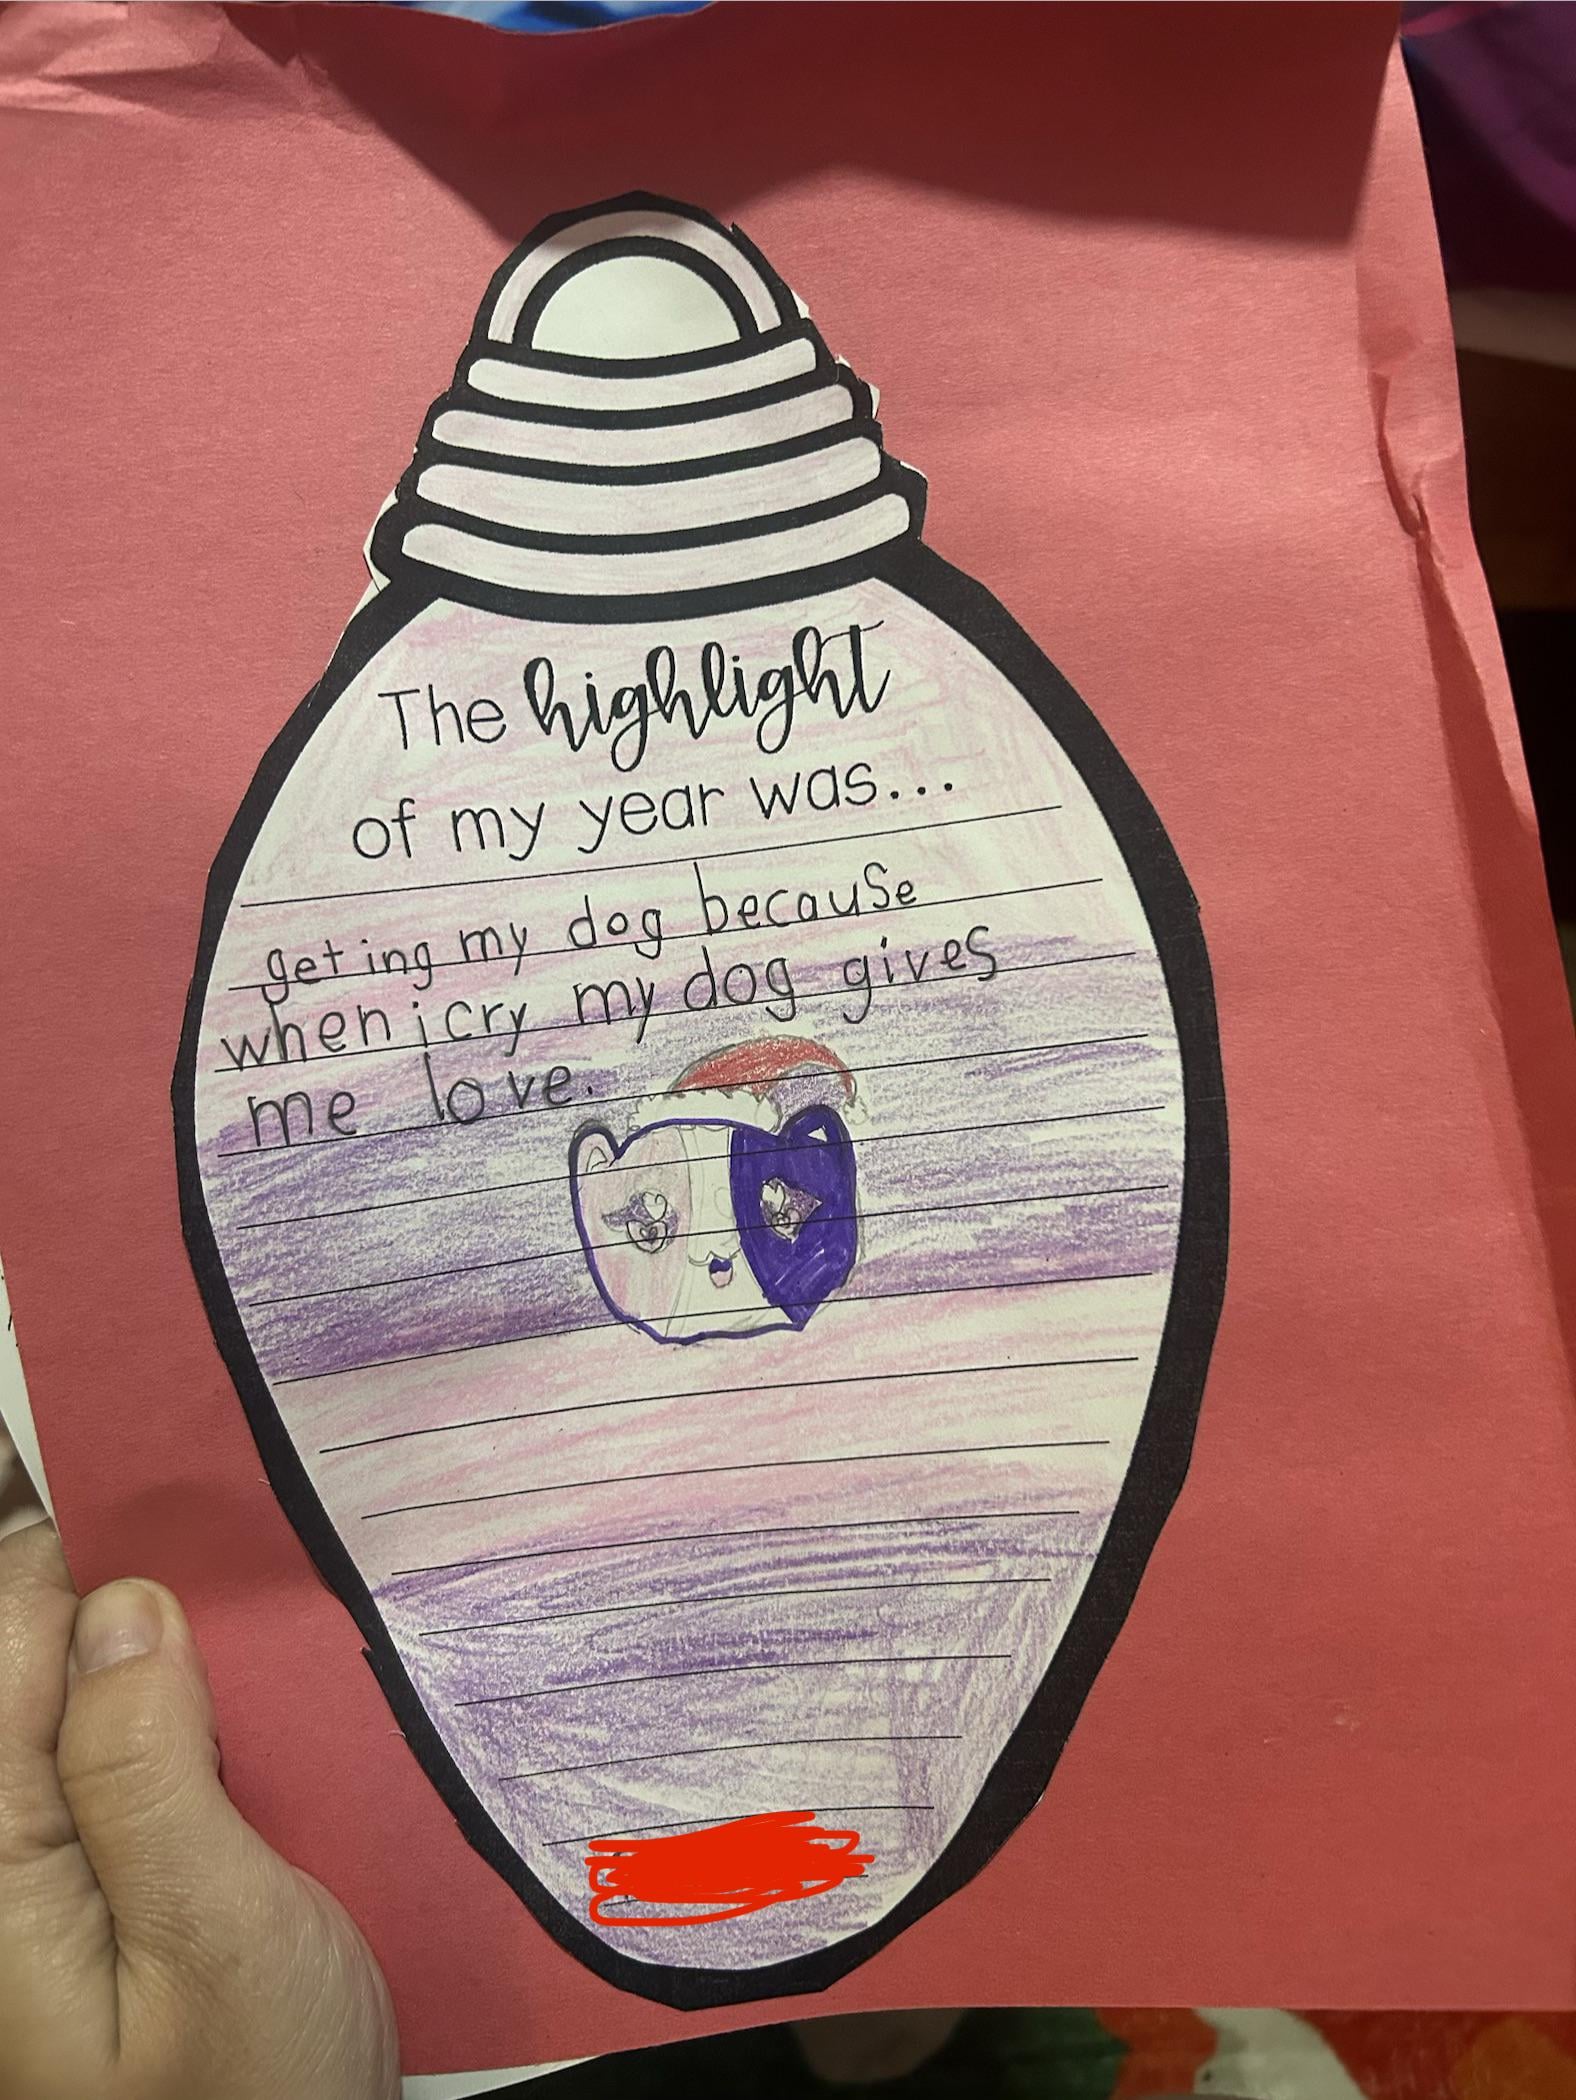 The highlight
of my year was...
geting my dog because
when i cry my dog gives
me love.